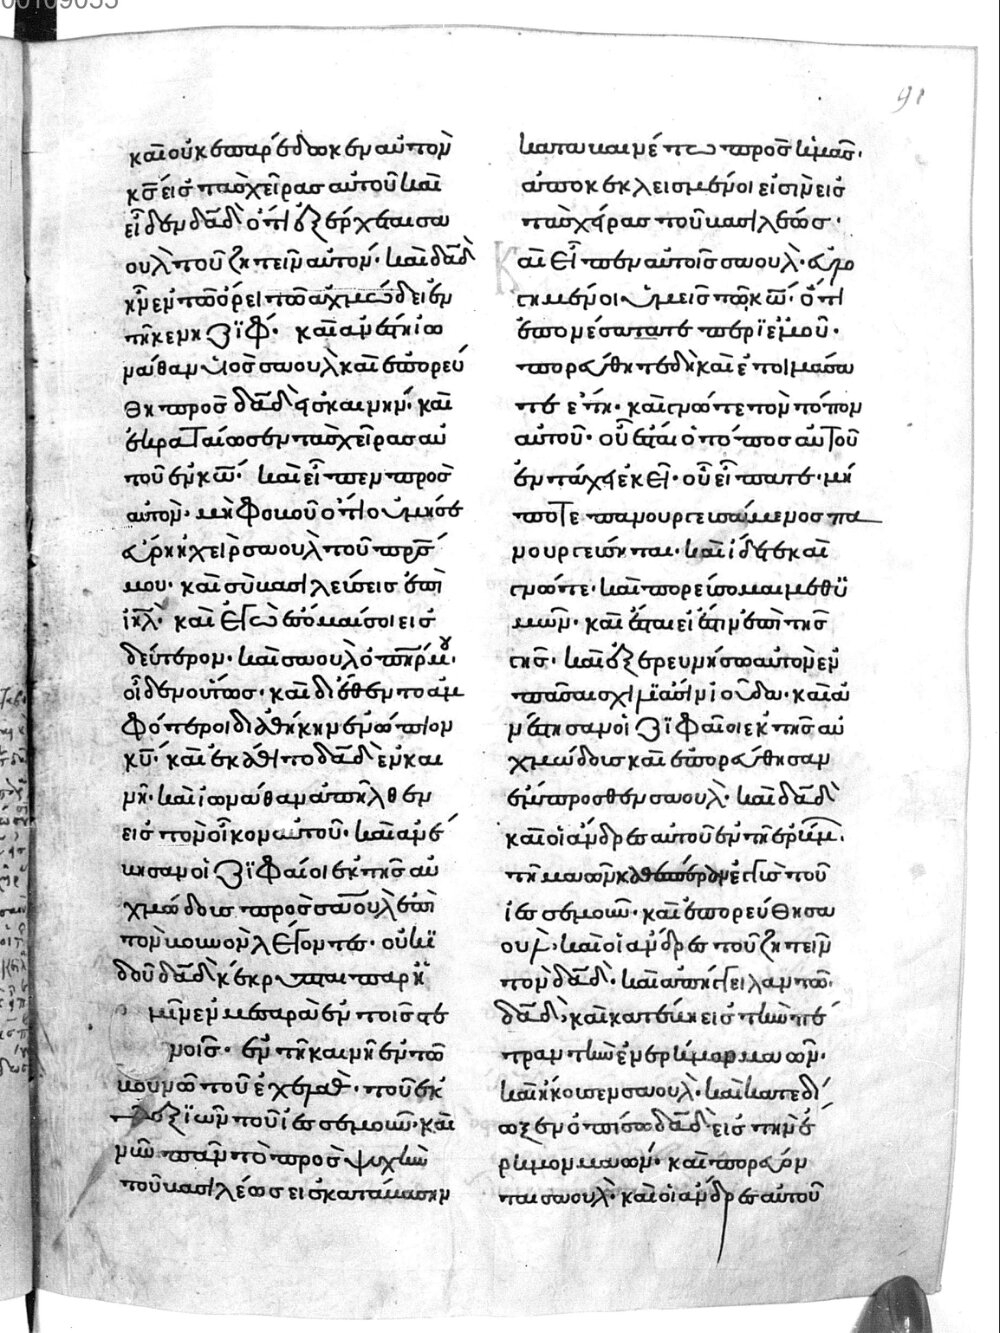 καὶ οὐ παρέδωκεν αὐτὸν
κς εἰς τὰς χεῖρας αὐτοῦ καὶ
εἶδεν δαδ ὅτι ἐξέρχεται σα
ουλ τοῦ ζητεῖν αὐτόν· καὶ δαδ
ἦν ἐν τῶ ὄρει τῶ αὐχμώδει ἐν
τῆ καινῆ ζϊφ· καὶ ἀνέστη ἰω
νάθαν υἱὸς σαουλ καὶ ἐπορεύ
θη πρὸς δαδ εἰς καινήν· καὶ
ἐκραταίωσεν τὰς χεῖρας αὐ
τοῦ ἐν κω· καὶ εἶπεν πρὸς
αὐτὸν· μὴ φοβοῦ ὅτι οὐ μή σε
εὕρη ἡ χεὶρ σαουλ τοῦ πρς
μου· καὶ σὺ βασιλεύσεις ἐπὶ
ιηλ· καὶ ἐγὼ ἔσομαί σοι εἰς
δεύτερον· καὶ σαουλ ὁ πηρ μου·
οἶδεν οὕτως· καὶ διέθεντο ἀμ
φότεροι διαθήκην ἐνώπιον
κυ· καὶ ἐκάθητο δαδ ἐν και
νῆ· καὶ ἰωνάθαν ἀπῆλθεν
εἰς τὸν οἶκον αὐτοῦ· καὶ ἀνέ
βησαν οἱ ζϊφαίοι ἐκ τῆς αὐ
χμώδους πρὸς σαουλ ἐπὶ
τὸν βουνὸν λέγοντες· οὐκ ϊ
δοῦ δαδ κέκρυπται παρ ἡ
μῖν ἐν μεσσαρὰ ἐν τοῖς στε
νοῖς· ἐν τῆ καινῆ ἐν τῶ
βουνῶ τοῦ ἐχελὰθ· τοῦ ἐκ
δεξϊῶν τοῦ ἰεσσεμοῦν· καὶ
νῦν πᾶν τὸ πρὸς ψυχὴν
τοῦ βασιλέως εἰς κατάβασιν
καταβαινέτω πρὸς ἡμᾶς·
ἀποκεκλεισμένοι εἰσὶν εἰς
τὰς χεῖρας τοῦ βασιλέως·
Καὶ εἶπεν αὐτοῖς σαουλ· εὐλο
γημένοι ὑμεῖς τῶ κω· ὅτι
ἐπονέσατε περϊ ἐμοῦ·
πορεύθητε δὴ καὶ ἑτοιμάσα
τε ἔτι· καὶ γνῶτε τὸν τόπον
αὐτοῦ· οὗ ἔσται ὁ ποὺς αὐτοῦ
ἐν τάχει ἐκεῖ· οὗ εἶπατε· μή
ποτε πανουργευσάμενος πα
νουργεύσηται· καὶ ἴδετε καὶ
γνῶτε· καὶ πορεύσομαι μεθ ϋ
μῶν· καὶ ἔσται εἰ ἔστιν ἐπὶ τῆς
γῆς· καὶ ἐξερευνήσω αὐτὸν ἐν
πάσαις χιλϊάσιν ἰούδα· καὶ ἀ
νέστησαν οἱ ζϊφαῖοι ἐκ τῆς αὐ
χμώδους καὶ ἐπορεύθησαν
ἔμπροσθεν σαουλ· καὶ δαδ
καὶ οἱ ἄνδρες αὐτοῦ ἐν τῆ ἐρήμω·
τῆ μαων καθ ἑσπέραν ἐκ δεξιῶν τοῦ
ἰεσσεμοῦν· καὶ ἐπορεύθη σα
ουλ· καὶ οἱ ἄνδρες τοῦ ζητεῖν
τὸν δαδ· καὶ ἀπήγγειλαν τῶ
δαδ· καὶ κατέβη εἰς τὴν πέ
τραν τὴν ἐν ἐρήμω μαων·
καὶ ἤκουσεν σαουλ· καὶ κατεδί
ωξεν ὀπίσω δαδ εἰς τὴν ἔ
ρημον μαων· καὶ πορεύον
ται σαουλ· καὶ οἱ ἄνδρες αὐτοῦ